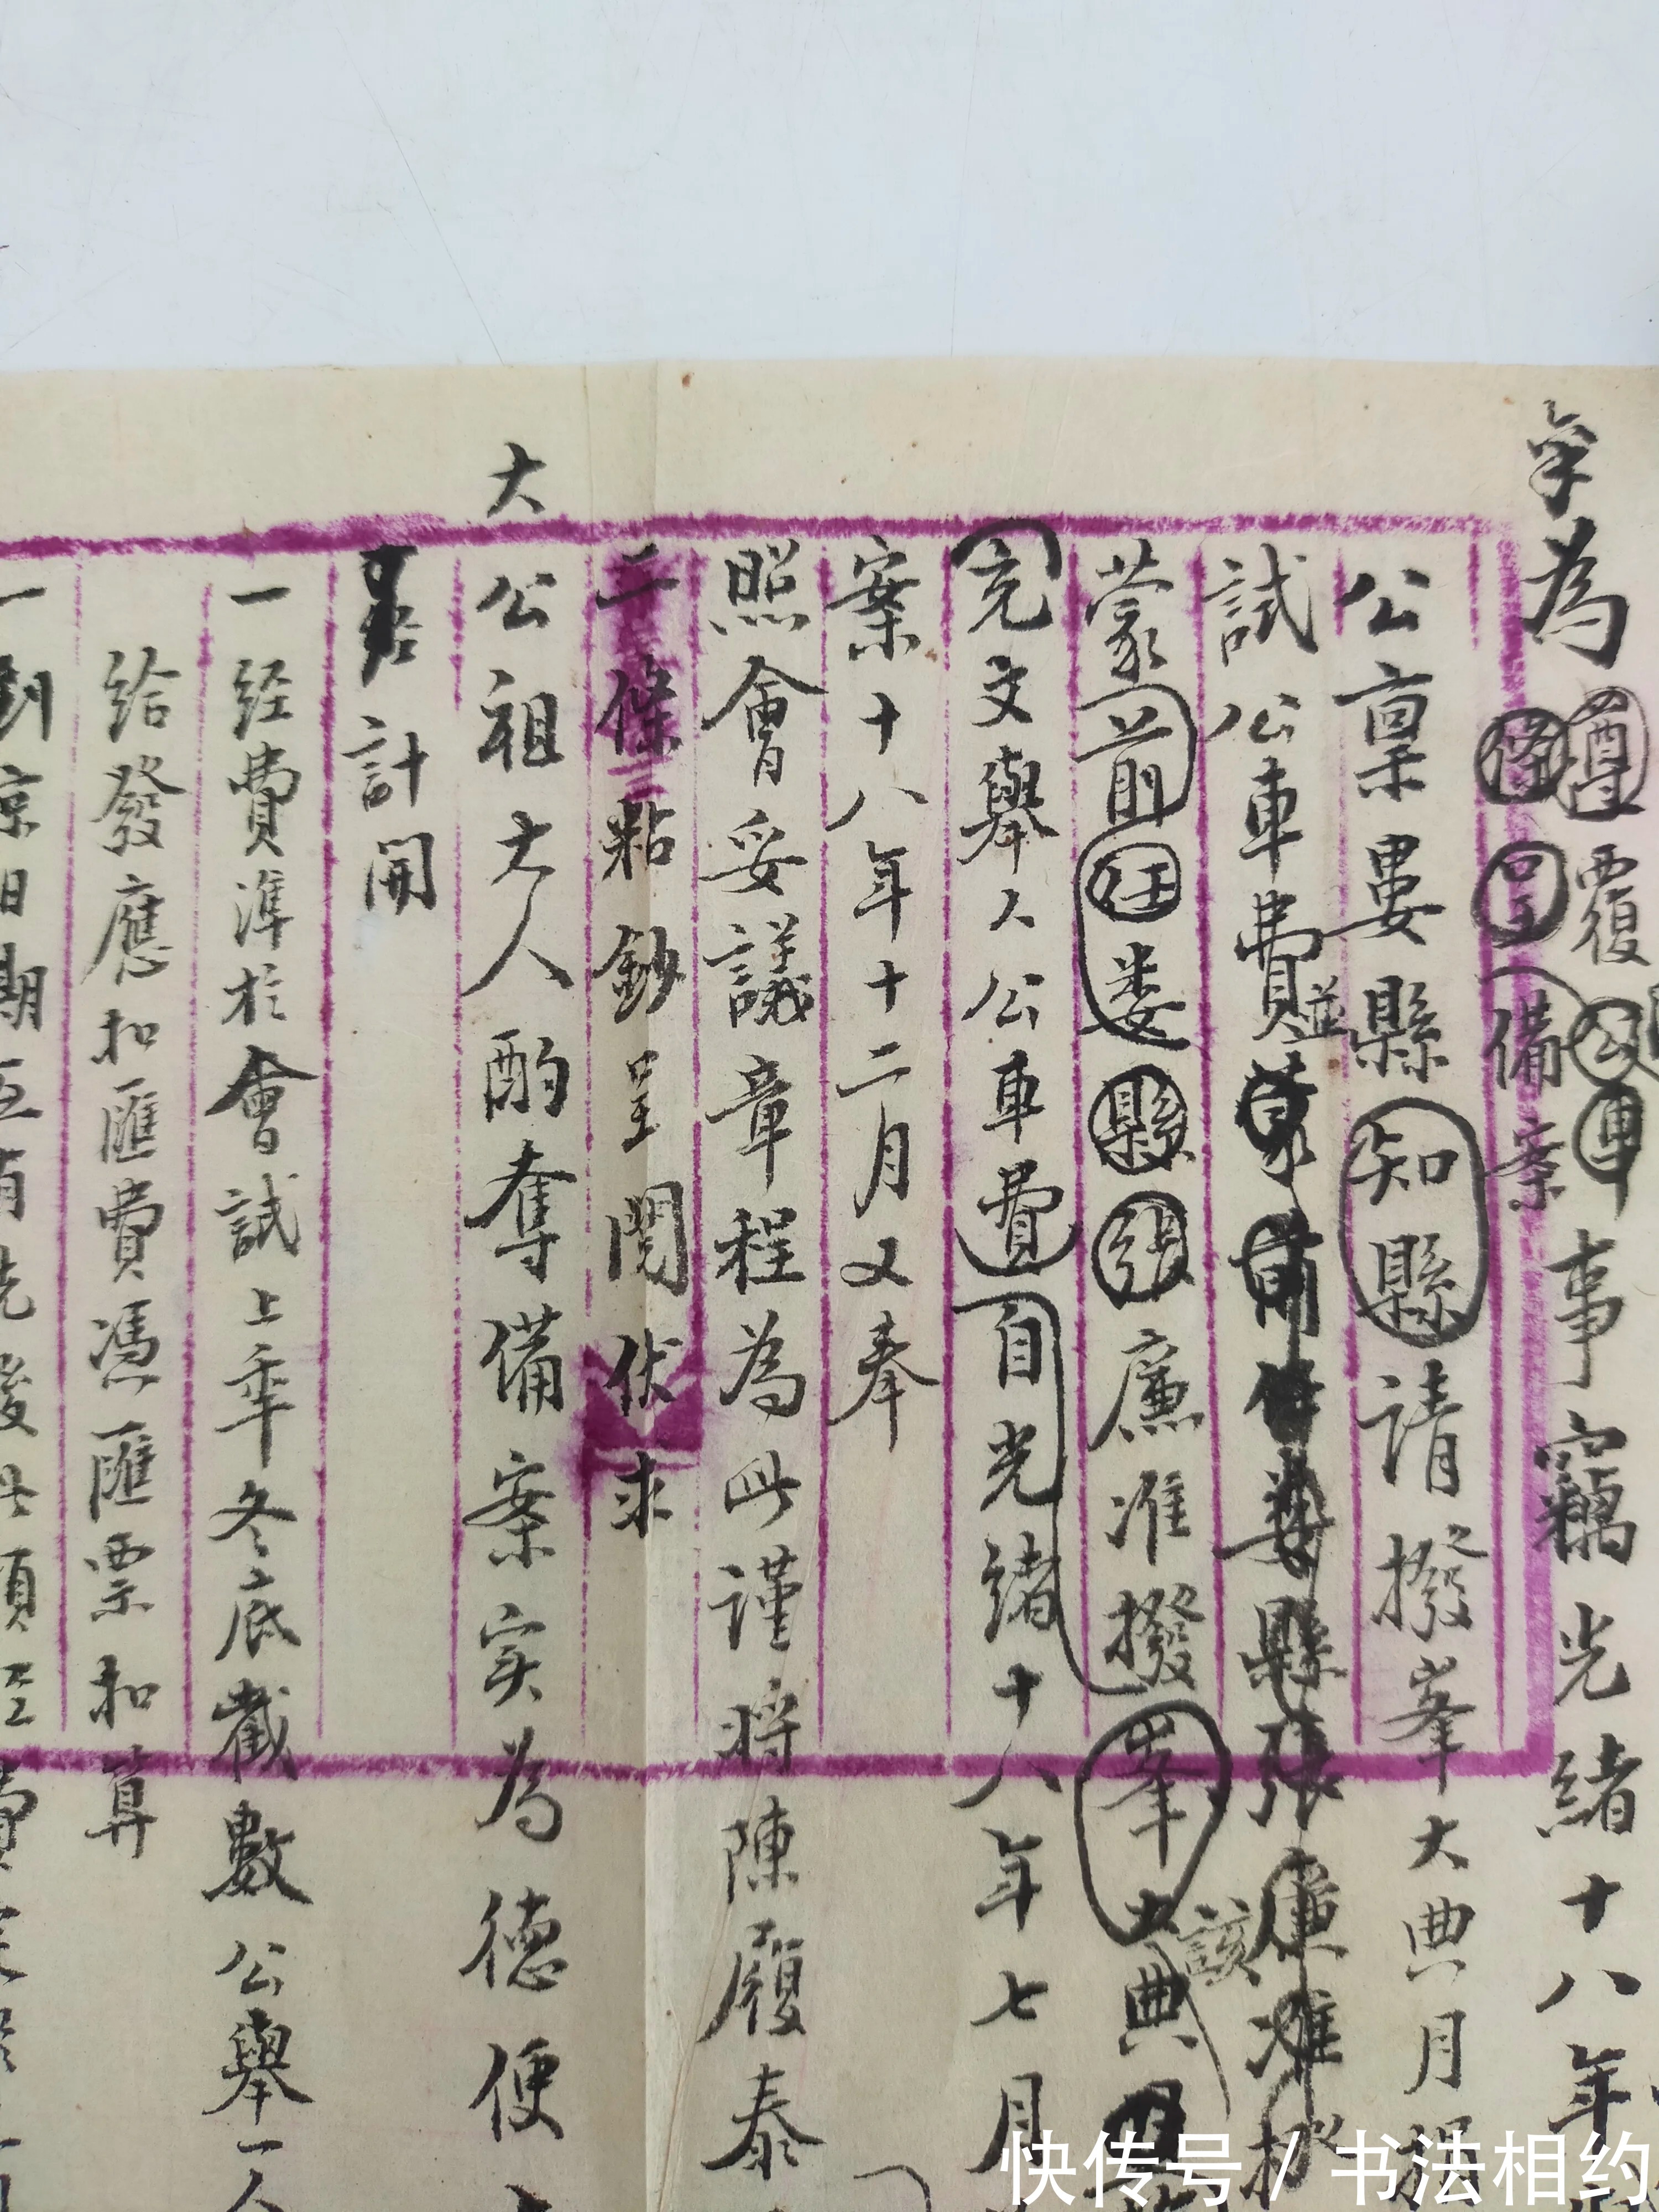 為遵覆公車事竊光緒十八年
條呈備案
公稟婁縣知縣請撥峯大典月捐
試公車費並蒙前任婁縣張廉准撥
蒙前任娄縣張廉准撥峯大典
該
充文舉人公車費自光緒十八年七月
案十八年十二月又奉
照會妥議章程為此謹將陳履泰
二條粘鈔呈閱伏求
大公祖大人酌奪備案实為德便
計開
一经費準於會試上年冬底截數公舉一人
給發應扣匯費馮匯票扣算
一到京日期
快传号/书法相约